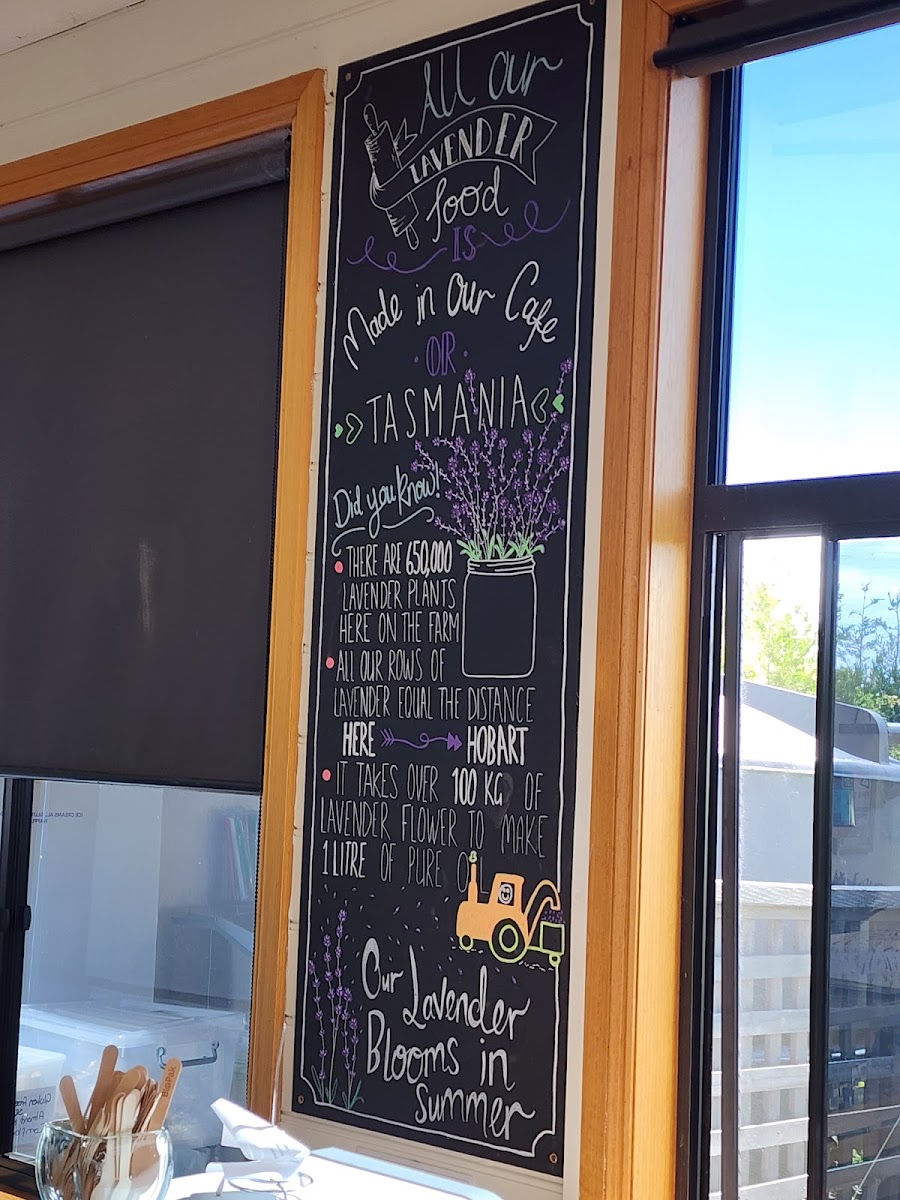 All our
LAVENDER
food
IS
Made in Our Cafe
· OR ·
TASMANIA
Did you know!
THERE ARE 650,000
LAVENDER PLANTS
HERE ON THE FARM
ALL OUR ROWS OF
LAVENDER EQUAL THE DISTANCE
HERE HOBART
IT TAKES OVER 100 KG OF
LAVENDER FLOWER TO MAKE
1 LITRE OF PURE OIL
Our Lavender
Blooms in
Summer
BioPak